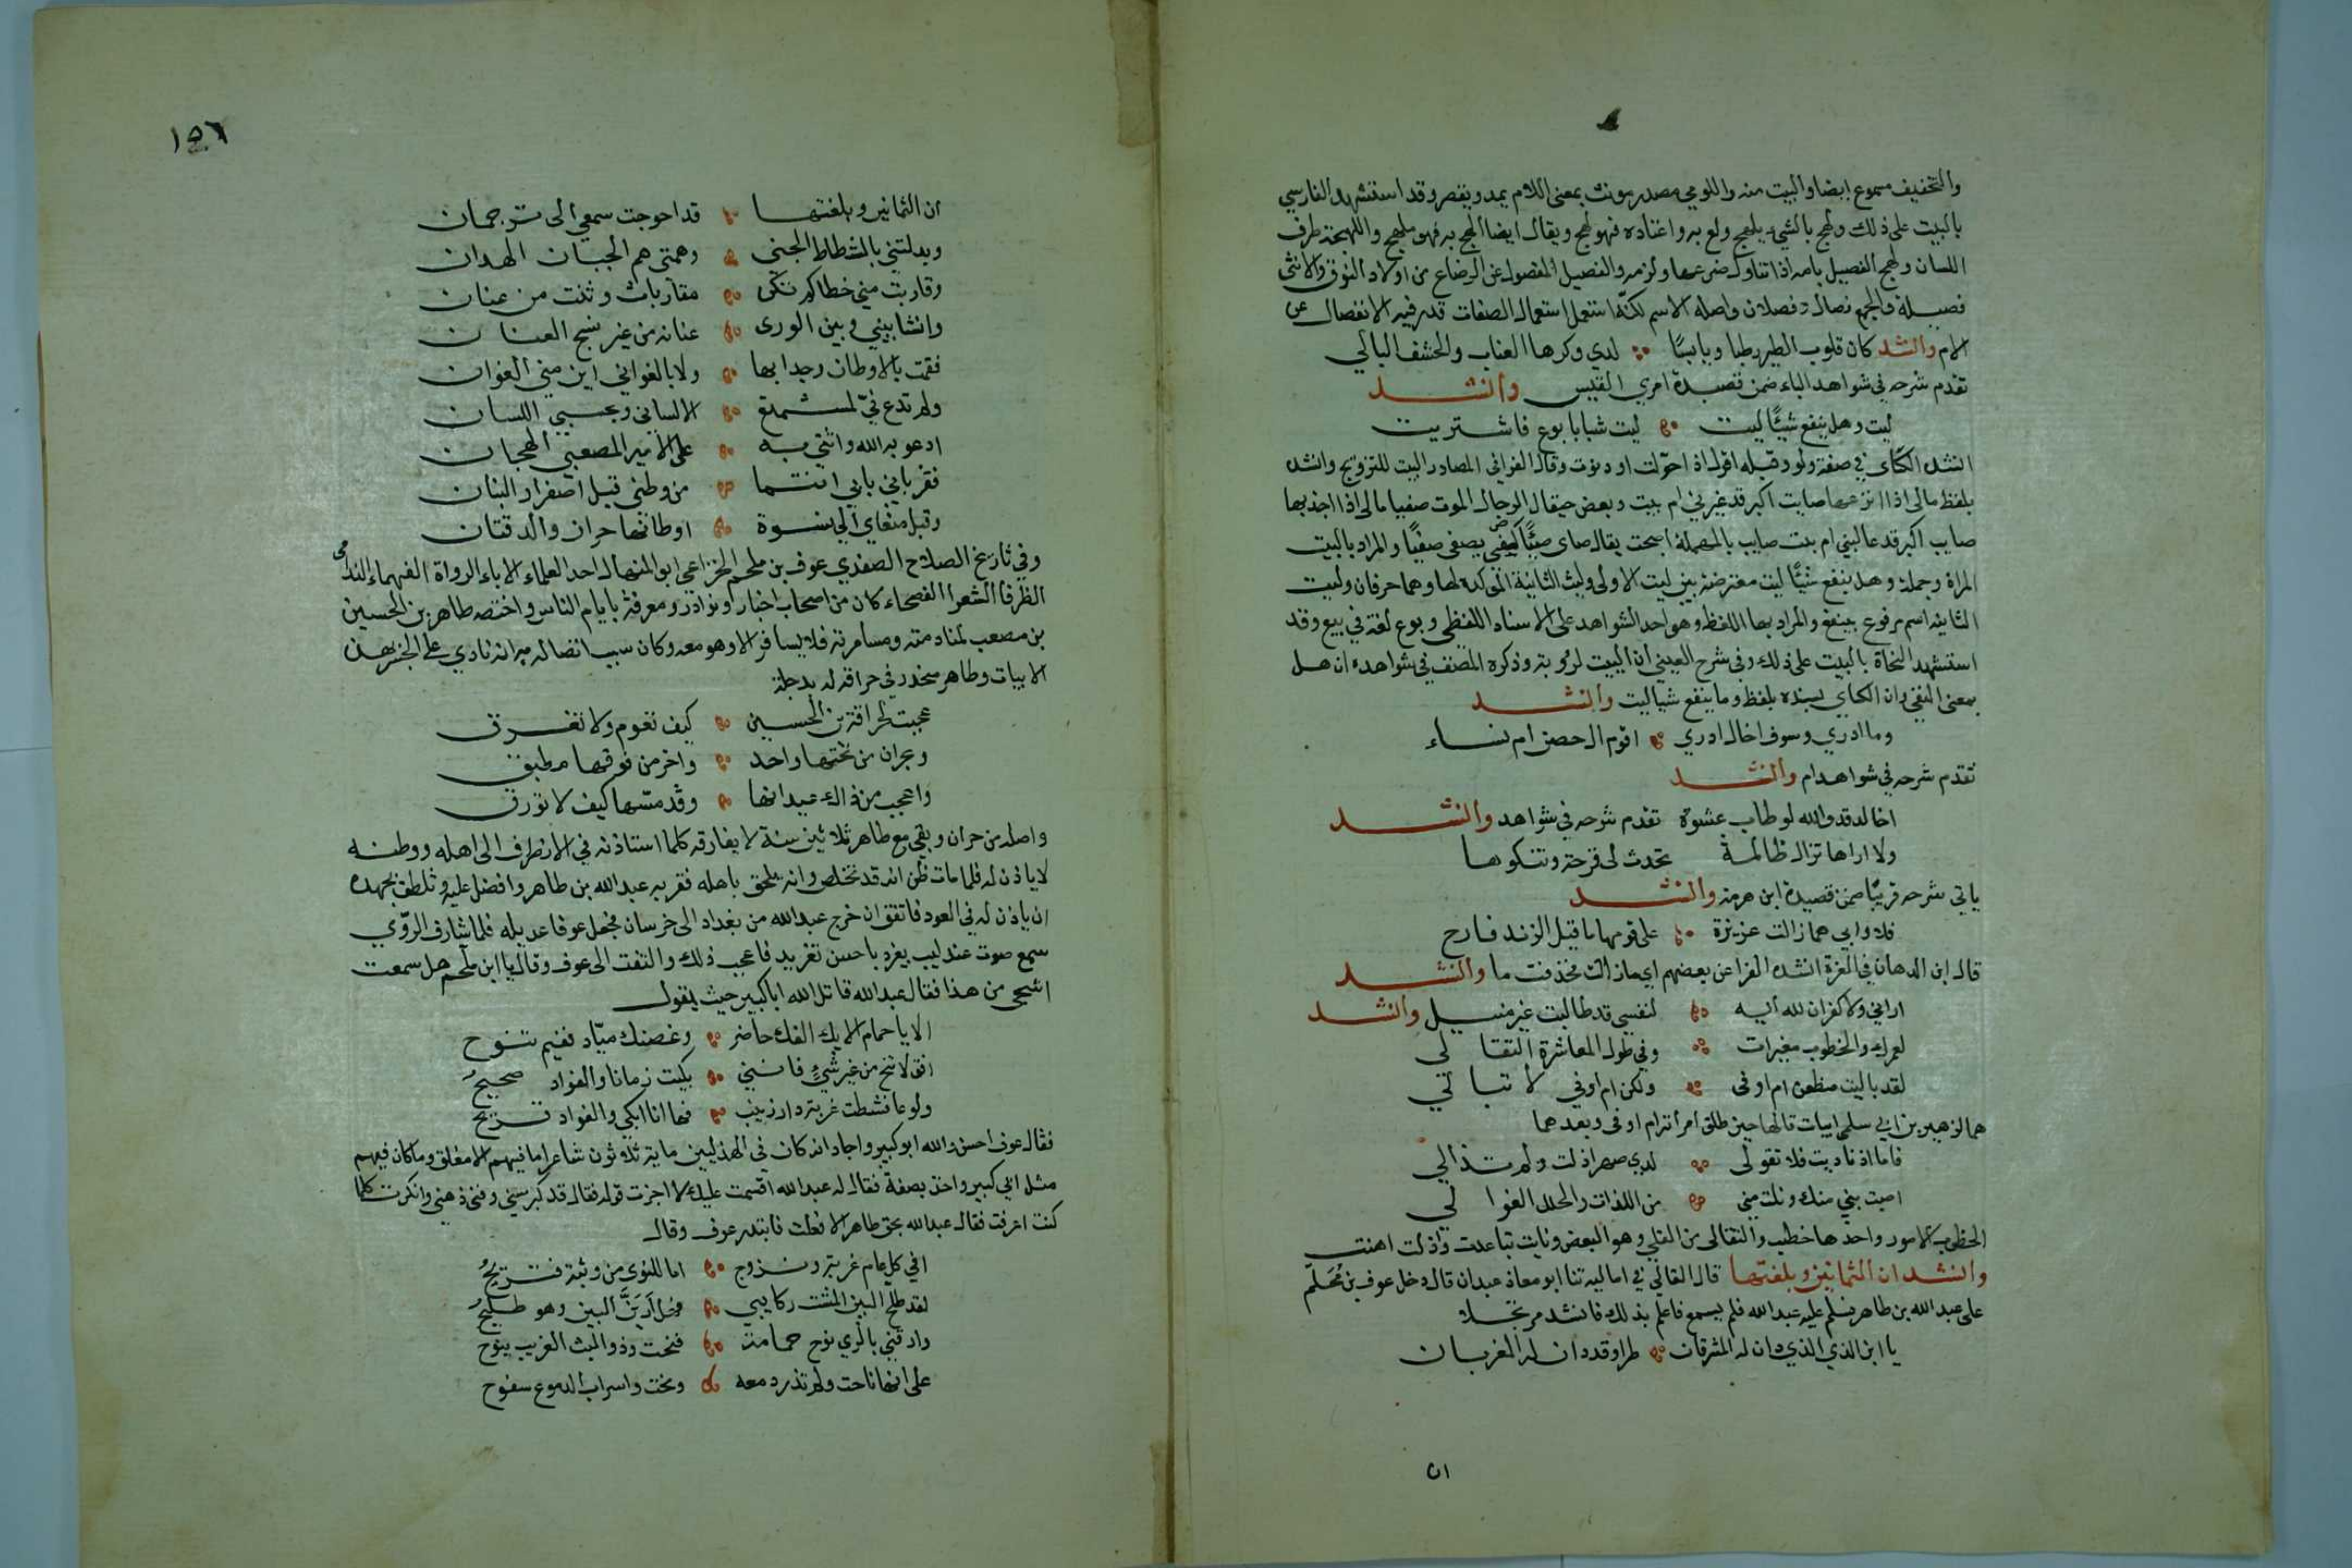 والتخفيف مسموع ايضا والبيت منه واللومي مصدر مونث بمعنى اللام يمد ويقصر وقد استشهد الفارسي
بالبيت على ذلك ولهج بالشيء يلهج ولع به واعتاده فهو لهج ويقال ايضا الهج به فهو ملهج واللهجة طرف
اللسان ولهج الفصيل بامه اذا تناول ضرعها ولزمه والفصيل المفصول عن الرضاع من اولاد النوق والانثى
فصيلة والجمع فصال وفصلان واصله الاسم لكنه استعمل استعمال الصفات قدر فيه الانفصال عن
الام والشد كان قلوب الطير رطبا ويابسًا لدي وكرها العناب والحشف البالي
تقدم شرحه في شواهد الباء ضمن قصيدة امري القيس وانشد
ليت وهل ينفع شيئًا ليت ليت شبابا بوع فاشتريت
انشد الكساى في صفة ولو وقبله اقول اذ احوّلت او دنوت
بلفظ مالى اذا انزعها صايت اكبر قد غيرني ام بيت وبعض حيقال الرجال الموت
صايب اكبر قد عالني ام بيت صايب بالمهملة اصحت يقال صاى يصفى صفيًا والمراد بالبيت
المراة وجملة وهل ينفع شيئًا ليت معترضة بين ليت الاولى وليت الثانية المؤكدة لها وهما حرفان وليت
الثانيه اسم مرفوع بينفع والمراد بها اللفظ وهو احد الشواهد على الاسناد اللفظي وبوع لغة في بيع وقد
استشهد النحاة بالبيت على ذلك وفى شرح العيني ان البيت لرؤبة وذكره المصنف في شواهده ان هل
بمعنى النفي وان الكساي بلفظ وما ينفع شيا ليت وانشد
وما ادري وسوف اخال ادري اقوم ال حصن ام نساء
تقدم شرحه في شواهد ام وانشد
اخالد قد والله لوطات عشوة تقدم شرحه في شواهد وانشد
ولا اراها تزال ظالمة تحدث لى قرحة وتنكوها
ياتي شرحه قريبًا ضمن قصيدة ابن هرمة وانشد
فلا وابي دهماء زالت عزيزة على قومها ما قيل الزند قادح
قال ابن الدهان في الغرة انشده الفرا عن بعضهم اي ما زالت فحذفت ما وانشد
اراني ولا كفران لله اليه لنفسي قد طالبت غير منيل وانشد
لعمرك والخطوب مغيرات وفي طول المعاشرة التقالي
لقد باليت مظعن ام اوفى ولكن ام اوفي لا تبالي
هما لزهير بن ابي سلمى ابيات قالها حين طلق امراته ام اوفى وبعدهما
فاما اذ نايت فلا تقولى لدي صهر اذلت ولم تذالي
اصبت بني منك ونلت مني من اللذات والحلل الغوالي
الخطوب الامور واحدها خطب والتقالى من القلي وهو البعض ونايت تباعدت واذلت اهنت
وانشد ان الثمانين وبلغتها قال القالي في اماليه ثنا ابو معاذ عبدان قال دخل عوف بن مُحَلّم
على عبد الله بن طاهر فسلم عليه عبد الله فلم يسمع فاعلم بذلك فانشد مرتجلا
يا ابن الذي دان له المشرقان طرا وقد دان له المغربان
ان
١٥٦
ان الثمانين وبلغتها قد احوجت سمعي الى ترجمان
وبدلتني بالشطاط الحنى وهمتي هم الجبان الهدان
وقاربت مني خطا لم تكن مقاربات وثنت من عنان
وانشا بيني وبين الورى عنانة من غير نسج العنان
فقمت بالاوطان وجدا بها ولا بالغواني اين مني الغوان
ولم تدع فيّ لمستمتع الا لساني وبحسبي اللسان
ادعو به الله واثني به على الامير المصعبي الهجان
فقرباني بابي انتما من وطني قبل اصفرار البنان
وقبل منعاي الى نسوة اوطانها حران والرقتان
وفي تاريخ الصلاح الصفدي عوف بن ملحم الخزاعي ابو المنهال احد العلماء الادباء الرواة الفهماء الندامى
الظرفا الشعرا الفصحاء كان من اصحاب اخبار ونوادر ومعرفة بايام الناس واختصه طاهر بن الحسين
بن مصعب لمنادمته ومسامرته فلا يسافر الا وهو معه وكان سبب اتصاله به انه نادى على الجسر بهذه
الابيات وطاهر منحدر في حراقة له بدجلة
عجبت لحراقة بن الحسين كيف تعوم ولا تغرق
وبحران من تحتها واحد واخر من فوقها مطبق
واعجب من ذاك عيدانها وقد مسّها كيف لا تورق
واصله من حران وبقي مع طاهر ثلاثين سنة لا يفارقه كلما استاذنه في الانصراف الى اهله ووطنه
لا ياذن له فلما مات ظن انه قد تخلص وانه يلحق باهله فقربه عبد الله بن طاهر وافضل عليه وتلطف بجهده
ان ياذن له في العود فاتفق ان خرج عبد الله من بغداد الى خرسان فجعل عوفا عديله فلما شارف الرّي
سمع صوت عندليب يغرد باحسن تغريد فاعجب ذلك والتفت الى عوف وقال يا ابن ملحم هل سمعت
اشجى من هذا فقال عبد الله قاتل الله ابا كبير حيث يقول
الا يا حمام الايك الفك حاضر وغصنك ميّاد ففيم تنوح
افق لا تنح من غير شيءٍ فانني بكيت زمانا والفواد صحيحُ
ولوعا فشطت غربة دار زينب فها انا ابكي والفواد قريح
فقال عوف احسن والله ابو كبير واجاد انه كان في الهذليين ماية وثلاثون شاعرا ما فيهم الا مفلق وما كان فيهم
مثل ابي كبير واخذ يصفه فقال له عبد الله اقسمت عليك الا اجزت قوله فقال قد كبر سني وفنى ذهني وانكرت كلما
كنت اعرفت فقال عبد الله بحق طاهر الا فعلت فابتدر عوف وقال
افي كل عام غربة ونزوح اما للنوى من ونية فتريحُ
لقد طلح البين المشت ركايبي فهل اَرَيَنَّ البين وهو طليحُ
وارقني بالري نوح حمامة فنحت وذو البث الغريب ينوح
على انها ناحت ولم تذر دمعه ونحت واسراب الدموع سفوح